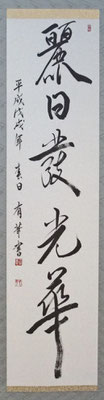 麗日發光華
平成戊戌年 春日 有華書